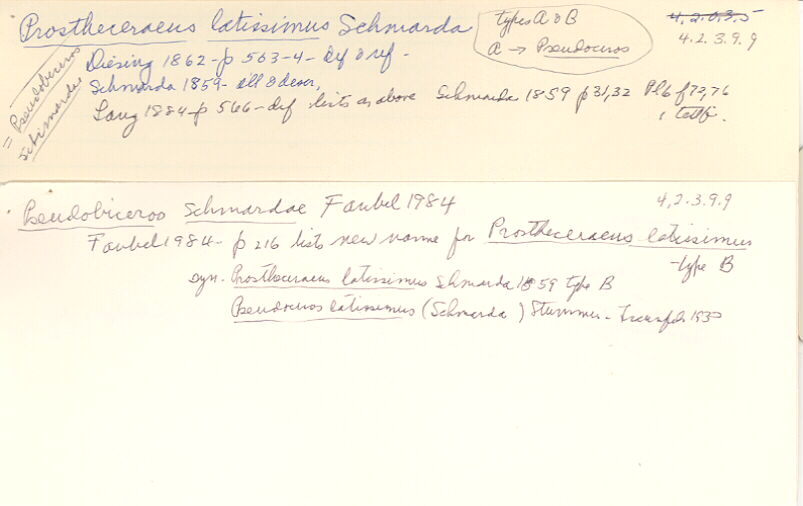 Prostheceraeus latissimus Schmarda
types A & B
A → Pseudoceros
4.2.0.3.5
4.2.3.9.9
= Pseudobiceros
schmardae
Diesing 1862 - p 563-4 - def & ref.
Schmarda 1859 - ill & descr,
Lang 1884 - p 566 - def lists as above Schmarda 1859 p 31,32 Pl 6 f 72,76
Pseudobiceros Schmardae Faubel 1984
4,2.3.9.9
Faubel 1984 - p 216 lists new name for Prostheceraeus latissimus
- type B
syn. Prostheceraeus latissimus Schmarda 1859 type B
Pseudoceros latissimus (Schmarda) Stummer - Traunfels 1933